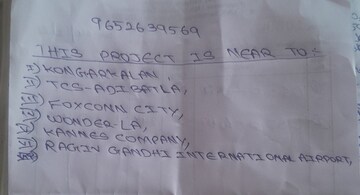 9652639569
THIS PROJECT IS NEAR TO:
I) KONGARKALAN,
II) TCS-ADIBATLA,
III) FOXCONN CITY,
WONDER-LA,
KANNES COMPANY,
RAGHIV GANDHI INTERNATIONAL AIRPORT,